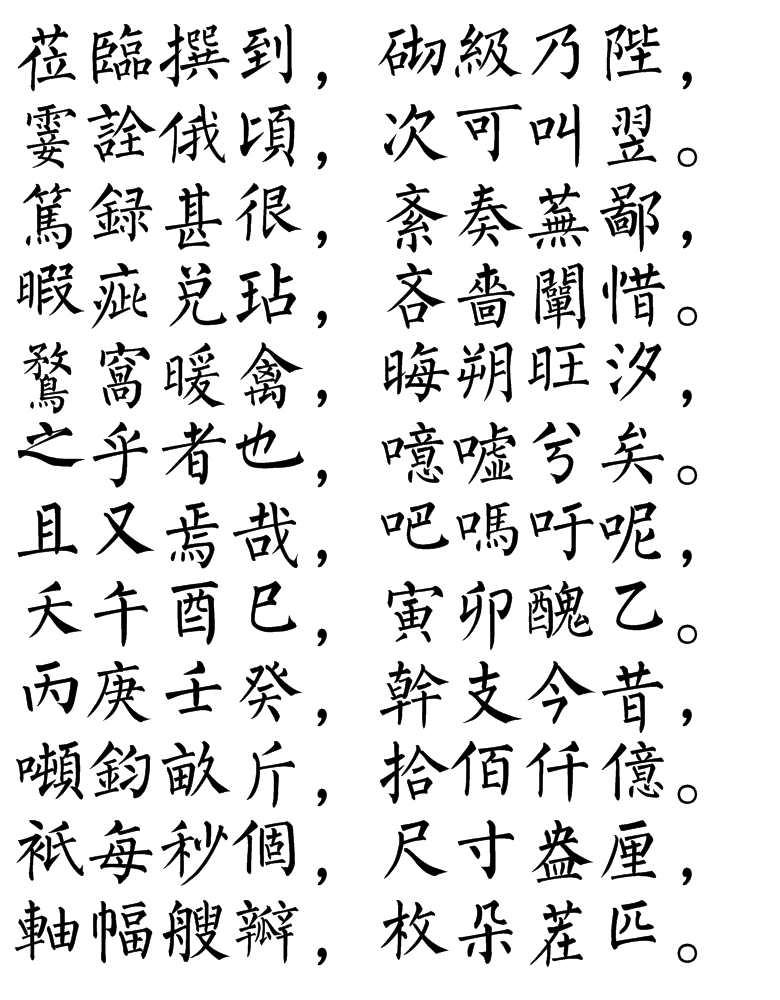 莅臨撰到，砌級乃陛，
霎詮俄頃，次可叫翌。
篤録甚很，紊奏蕪鄙，
暇疵兌玷，吝嗇闡惜。
鶩窩暖禽，晦朔旺汐，
之乎者也，噫嘘兮矣。
且又焉哉，吧嗎吁呢，
夭午酉巳，寅卯醜乙。
丙庚壬癸，幹支今昔，
噸鈞畝斤，拾佰仟億。
衹每秒個，尺寸盎厘，
軸幅艘瓣，枚朵茬匹。